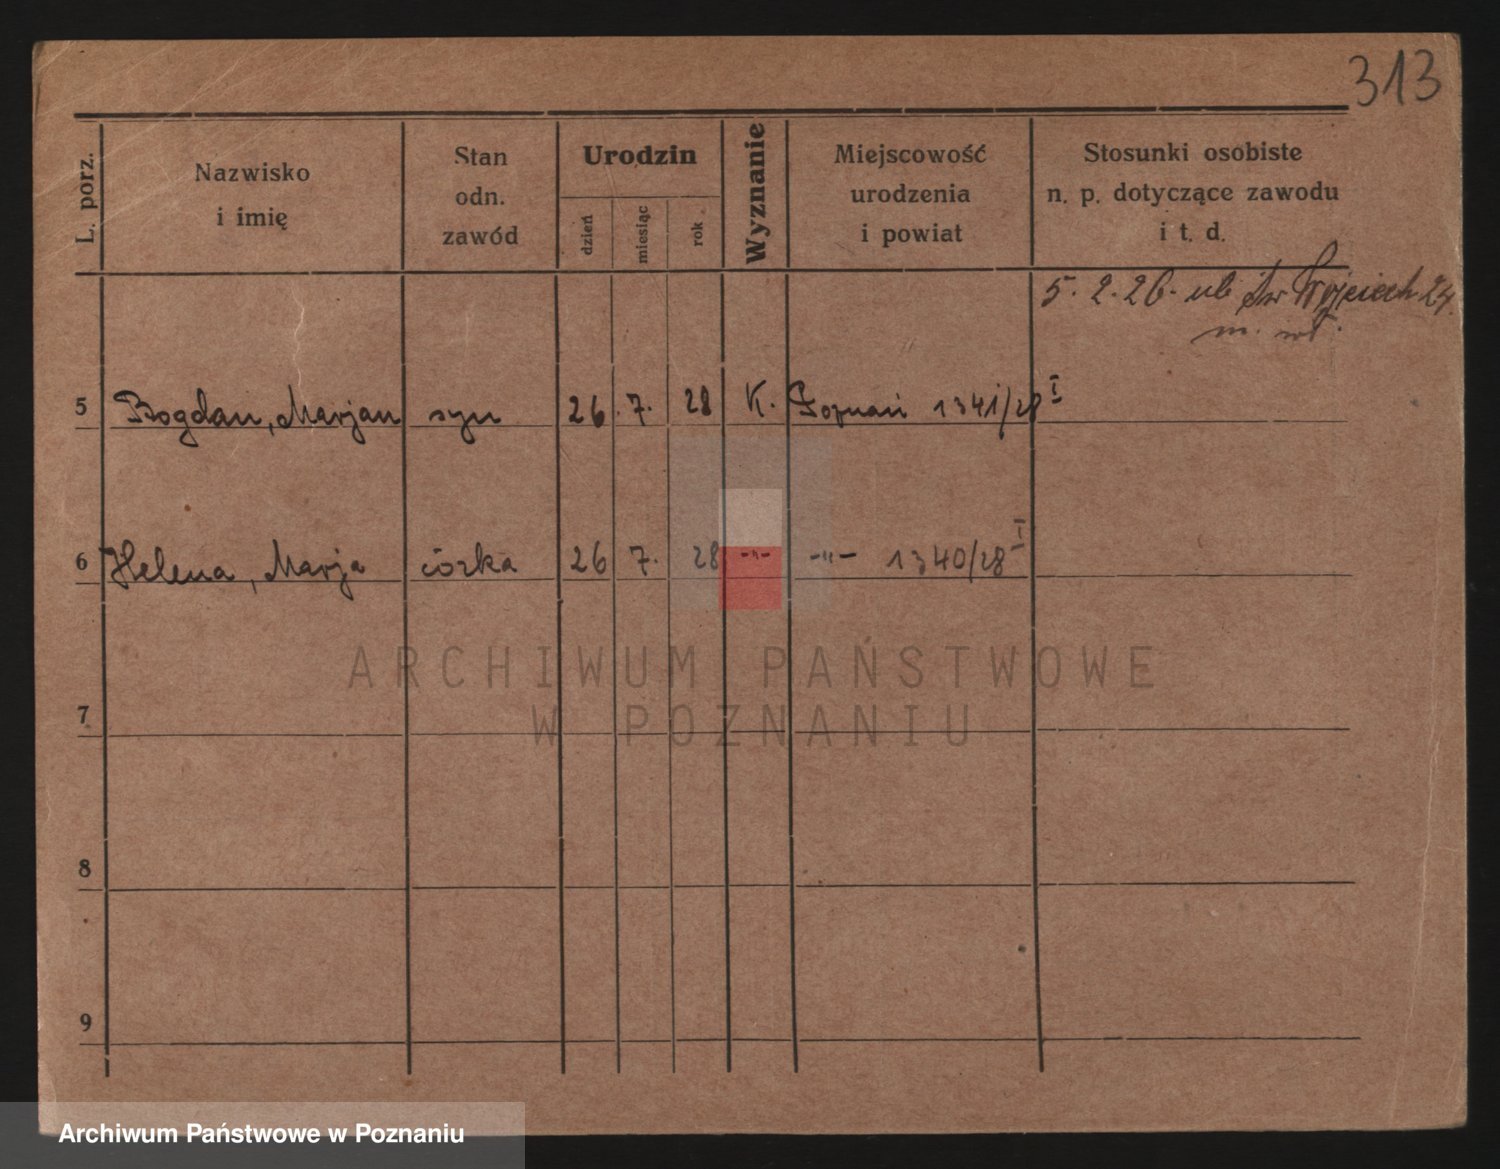 313
L. porz.
Nazwisko
i imię
Stan
odn.
zawód
Urodzin
dzień
miesiąc
rok
Wyznanie
Miejscowość
urodzenia
i powiat
Stosunki osobiste
n. p. dotyczące zawodu
i t. d.
5. 2. 26. ul. Św Wojciech 24.
m.
5 Bogdan, Marjan syn 26. 7. 28 K. Poznań 1341/28 I
6 Helena, Marja córka 26 7. 28 -"- -"- 1340/28 I
ARCHIWUM PAŃSTWOWE
W POZNANIU
7
8
9
Archiwum Państwowe w Poznaniu